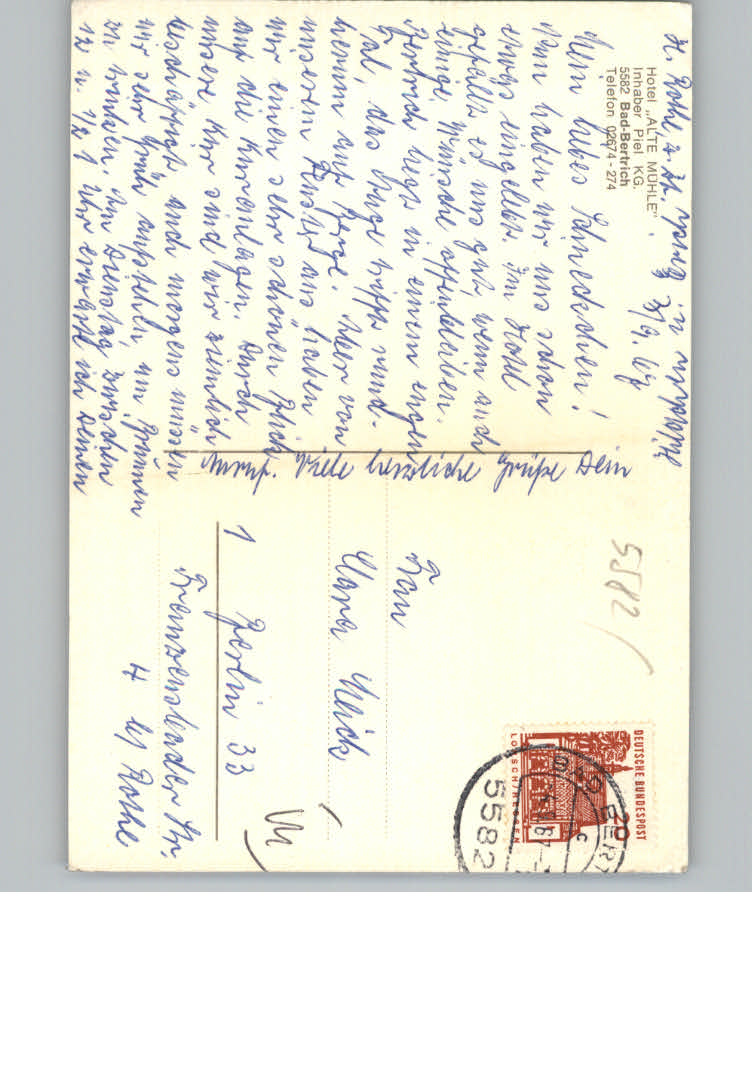 H. Rothe, z. Zt.
Hotel „ALTE MÜHLE"
Inhaber Piel KG.
5582 Bad-Bertrich
Telefon 02674 - 274
3/9. 67
Mein liebes Schneckchen!
Nun haben wir uns schon
etwas eingelebt. Im Hotel
gefällt es uns gut, wenn auch
einige Wünsche offenbleiben.
Bertrich liegt in einem engen
Tal, das Auge trifft rund-
herum auf Berge. Aber von
unserem Fenster aus haben
wir einen sehr schönen Blick
auf die Kuranlagen. Durch
unsere Kur sind wir ziemlich
beschäftigt und morgens müssen
wir sehr früh aufstehen um Brunnen
zu trinken. Am Dienstag zwischen
12 u. 1/2 1 Uhr erwarte ich Deinen
Anruf. Viele herzliche Grüße Dein
Frau
Clara
1 Berlin 33
Str.
4 b/ Rothe
5582
DEUTSCHE BUNDESPOST
20
LORSCH/HESSEN
5582